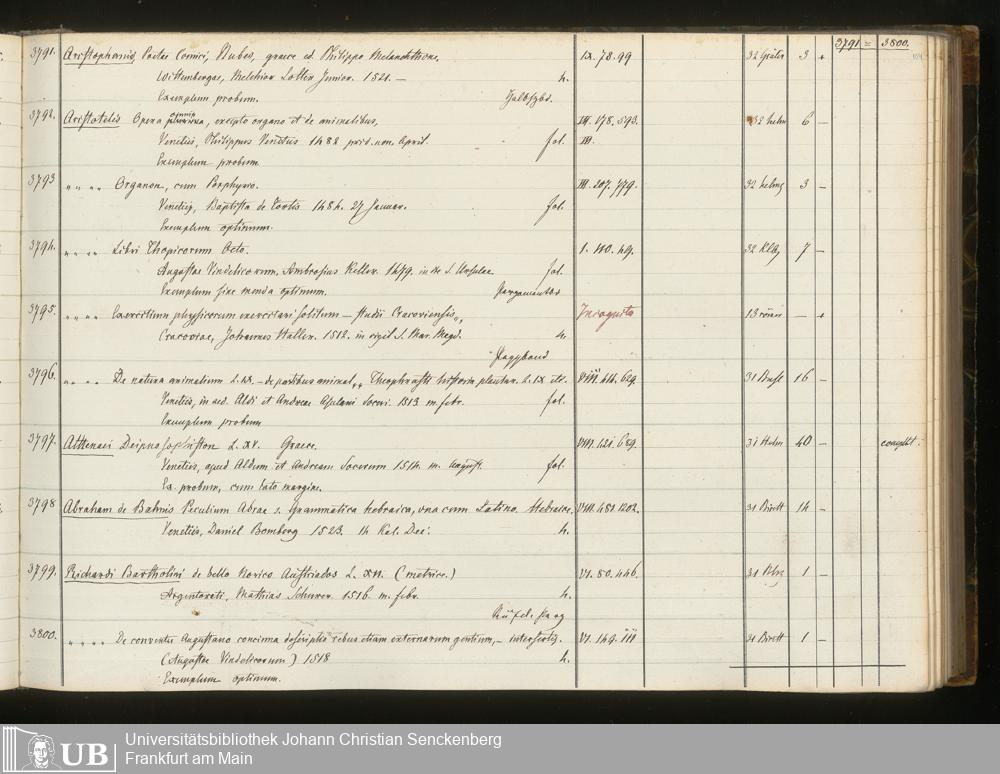 3791 = 3800.
3791. Aristophanis, Poetae Comici, Nubes, graece ed. Philippo Melanchthone. IX. 78. 99 32 3 +
Wittembergae, Melchior Lotter Junior. 1521. — 4.
Exemplum probum. Halbfzbd.
3792. Aristotelis Opera omnia, excepto organo et de animalibus, III. 178. 593. 32 helm 6 —
Venetiis, Philippus Venetus 1482 prid. non. April. fol. III.
Exemplum probum
3793 " " " " Organon, cum Porphyrio. III. 207. 779. 32 helm 3 —
Venetiis, Baptista de Tortis 1484. 27 Januar. fol.
Exemplum optimum.
3794. " " " " Libri Thopicorum Octo. 1. 110. 49. 32 7 —
Augustae Vindelicorum, Ambrosius Keller. 1479. in S. Ursulae fol.
Exemplum sine menda optimum. Pergamentbd
3795. " " " " Exercitium physicorum exercitari solitum — studii Cracoviensis " Incognito 13 — +
Cracoviae, Johannes Haller. 1512. in vigil S. Mar. Magd. 4.
Pappband
3796. " " " " De natura animalium L. IX. — de partibus animal " Theophrasti histor. plantar. L. IX etc. VIII. 416. 629. 31 16 —
Venetiis, in aed. Aldi et Andreae Asulani Soceri. 1513. m. febr. fol.
Exemplum probum
3797. Athenaei Deipnosophiston L. XV. Graece. VIII. 421. 689. 31 40 — complet.
Venetiis, apud Aldum et Andream Socerum 1514. m. August. fol.
Ex. probum, cum lato margine.
3798 Abraham de Balmis Peculium Abrae s. Grammatica hebraica, una cum Latino. Hebraice. VIII. 480 1202. 31 Birett 14 —
Venetiis, Daniel Bomberg 1523. 14 Kal. Dec. 4.
3799. Richardi Bartholini de bello Norico Austriados L. XII. (metrice.) VI. 80. 446. 31 1 —
Argentorati, Mathias Schurer. 1516. m. febr. 4.
3800. " " " " De conventu Augustano concinna descriptio rebus etiam externarum gentium, — intersertis. VI. 149. 31 Birett 1 —
(Augustae Vindelicorum) 1518 4.
Exemplum optimum.
UB Universitätsbibliothek Johann Christian Senckenberg
Frankfurt am Main